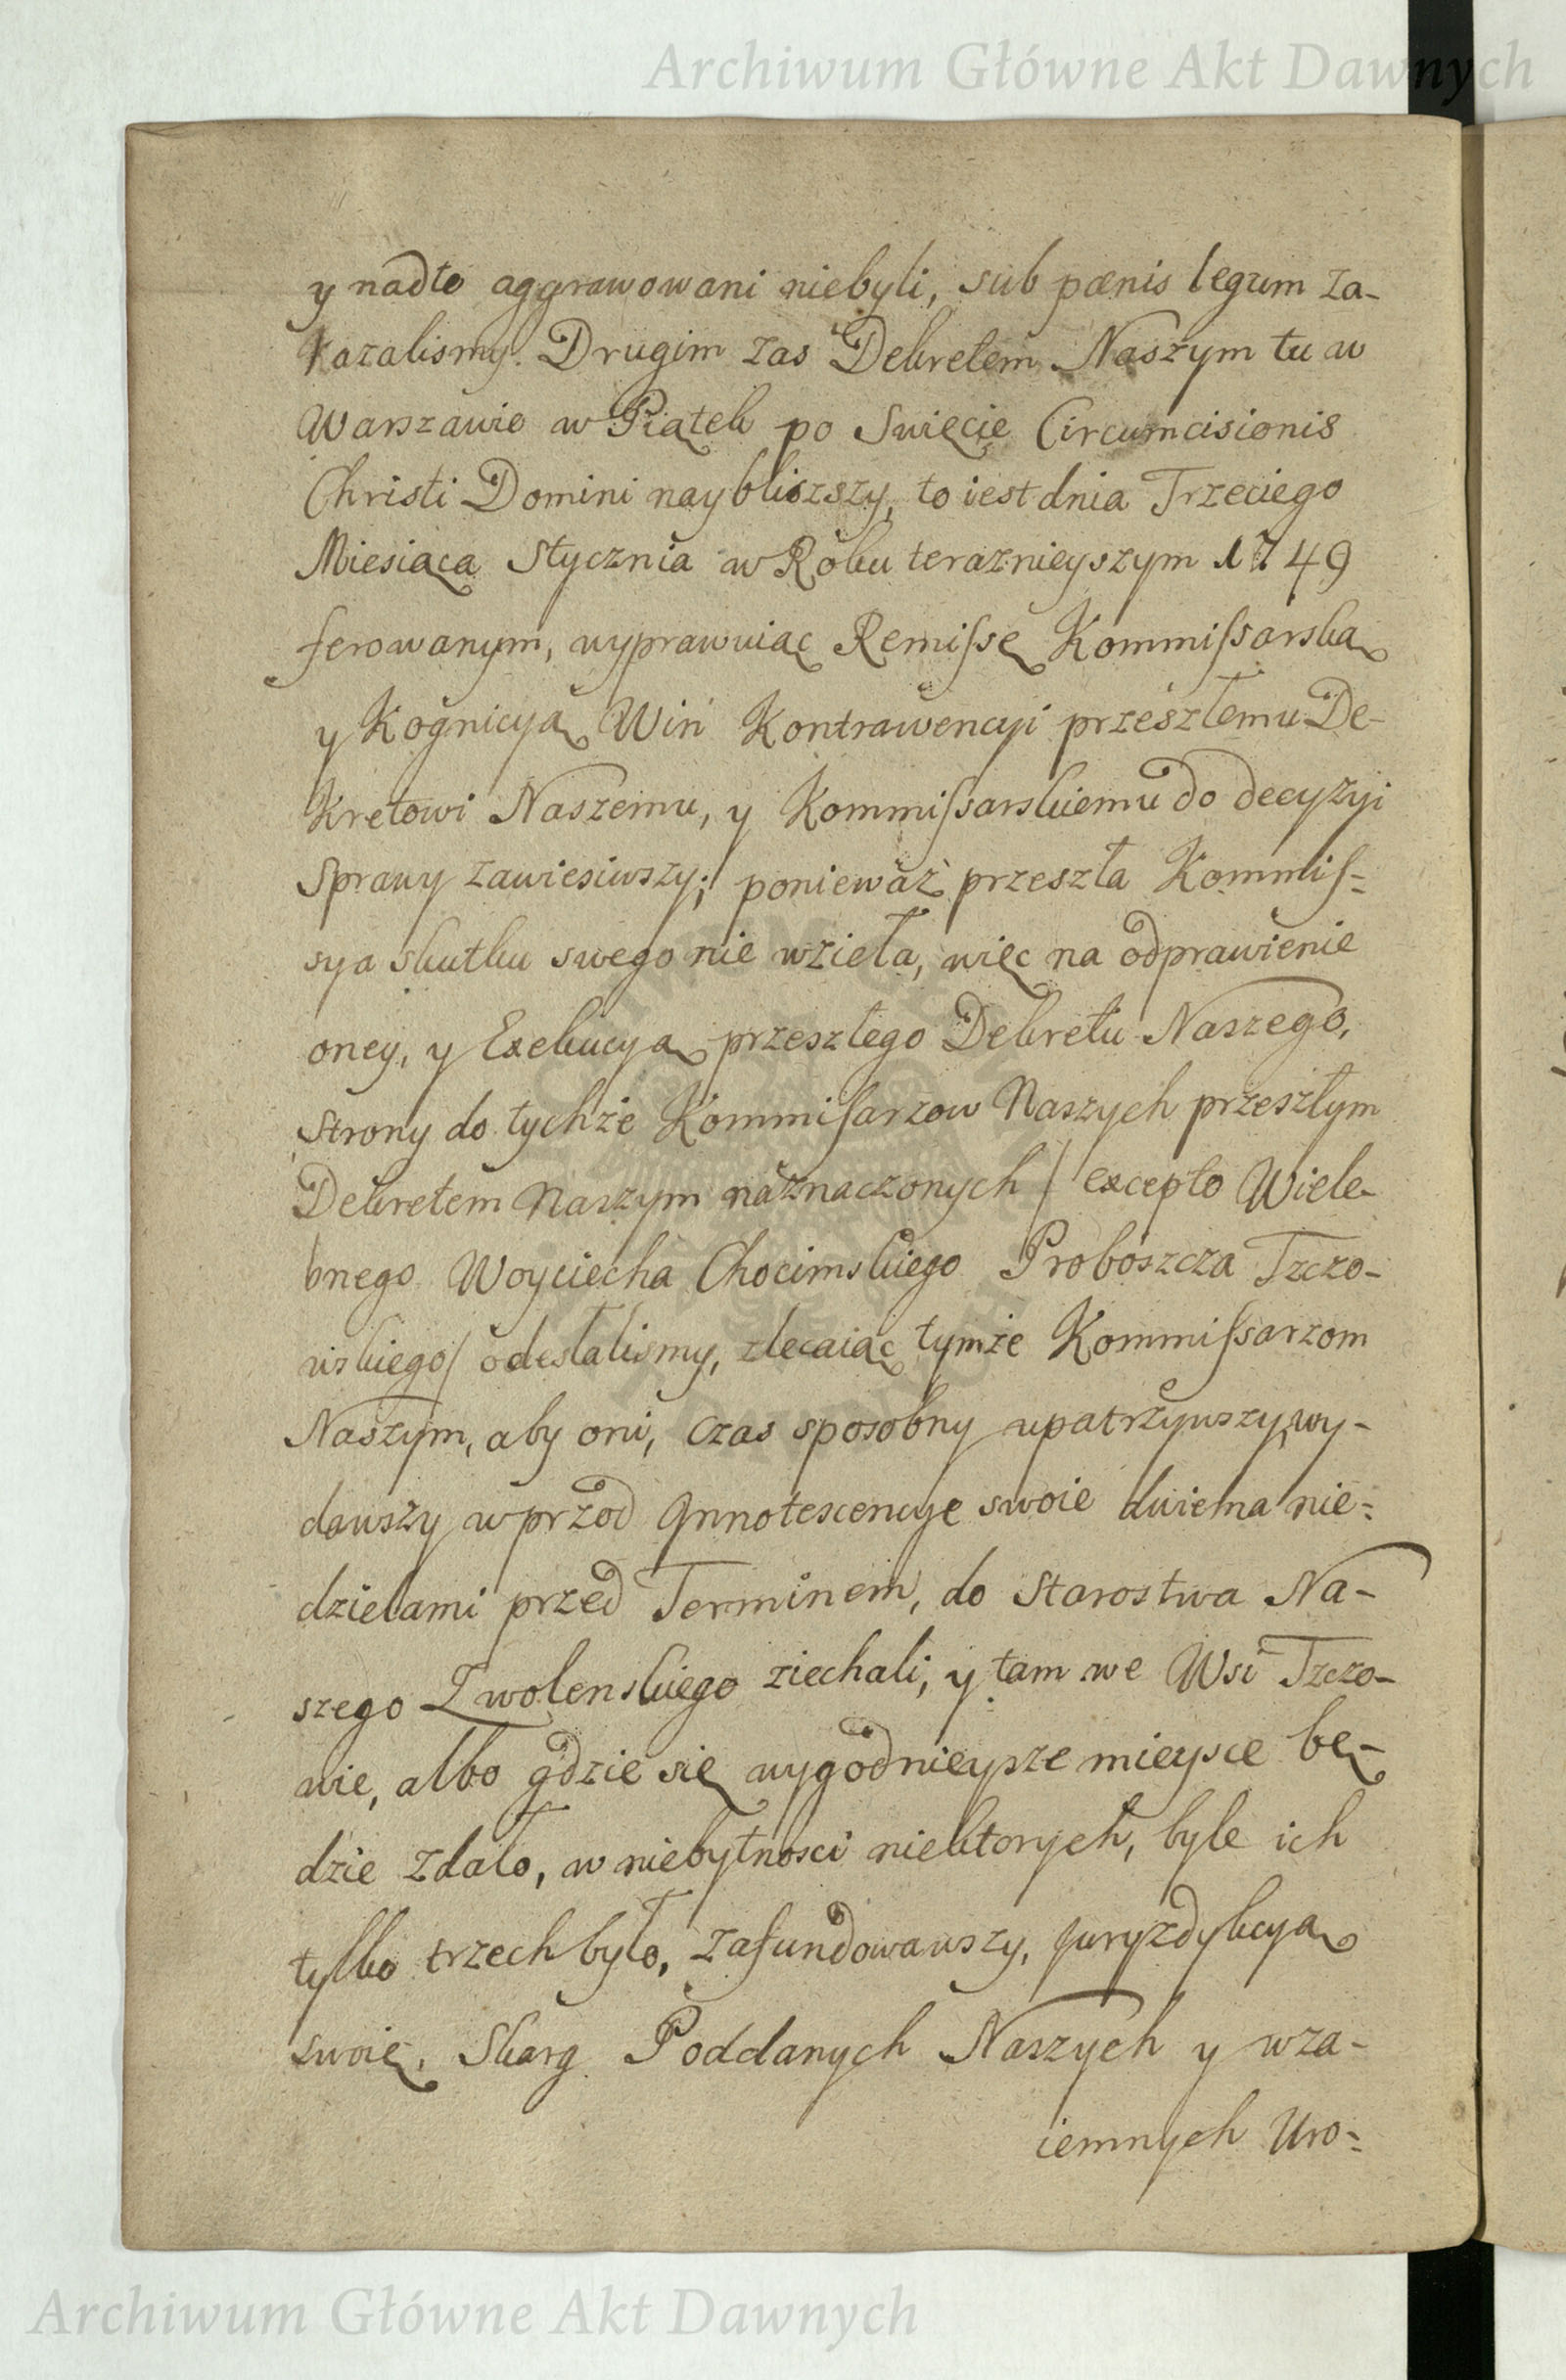 Archiwum Główne Akt Dawnych
y nadto aggrawowani niebyli, sub pænis legum za-
kazalismy. Drugim zas Dekretem Naszym tu w
Warszawie w Piątek po Swięcie Circumcisionis
Christi Domini naybliższy, to iest dnia Trzeciego
Miesiąca Stycznia w Roku teraznieyszym 1749
ferowanym, wyprawuiąc Remissę Kommissarską
y Kognicyą Win Kontrawencyi przeszłemu De-
kretowi Naszemu, y Kommissarskiemu do decyzyi
Sprawy zawiesiwszy; ponieważ przeszła Kommis-
sya skutku swego nie wzieła, więc na odprawienie
oney, y Exekucyą przeszłego Dekretu Naszego,
Strony do tychże Kommisarzow Naszych przeszłym
Dekretem Naszym naznaczonych / excepto Wiele-
bnego Woyciecha Chocimskiego Proboszcza Tzczo-
wskiego / odesłalismy, zlecaiąc tymże Kommissarzom
Naszym, aby oni, czas sposobny upatrzywszy, wy-
dawszy wprzod Innotescencye swoie dwiema nie-
dzielami przed Terminem, do Starostwa Na-
szego Zwolenskiego ziechali, y tam we Wsi Tzczo-
wie, albo gdzie się wygodnieysze mieysce bę-
dzie zdało, w niebytnosci niektorych, byle ich
tylko trzech było, zafundowawszy, Juryzdykcyą
swoię, Skarg Poddanych Naszych y wza-
iemnych Uro-
Archiwum Główne Akt Dawnych